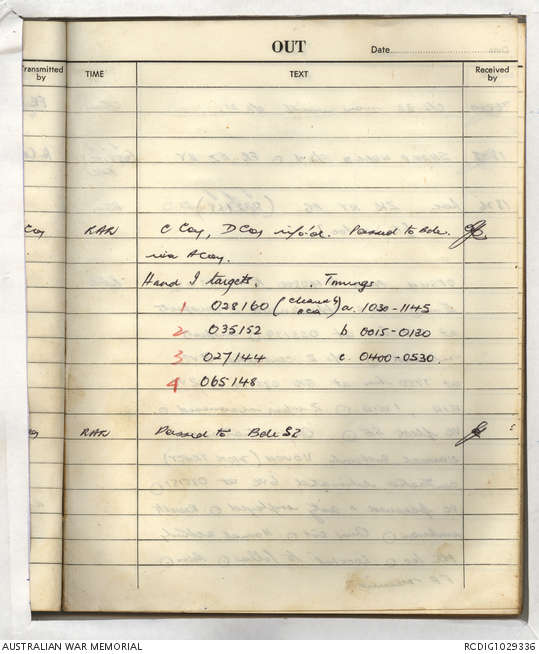 OUT Date
Transmitted by TIME TEXT Received by
Coy RAR C Coy, D Coy info'd. Passed to Bde.
via A Coy.
Hand I targets. . Timings
1 028160 (cleared a. 1030-1145
2 035152 b 0015-0130
3 027144 c. 0400-0530.
4 065148
RAR Passed to Bde S2
AUSTRALIAN WAR MEMORIAL RCDIG1029336